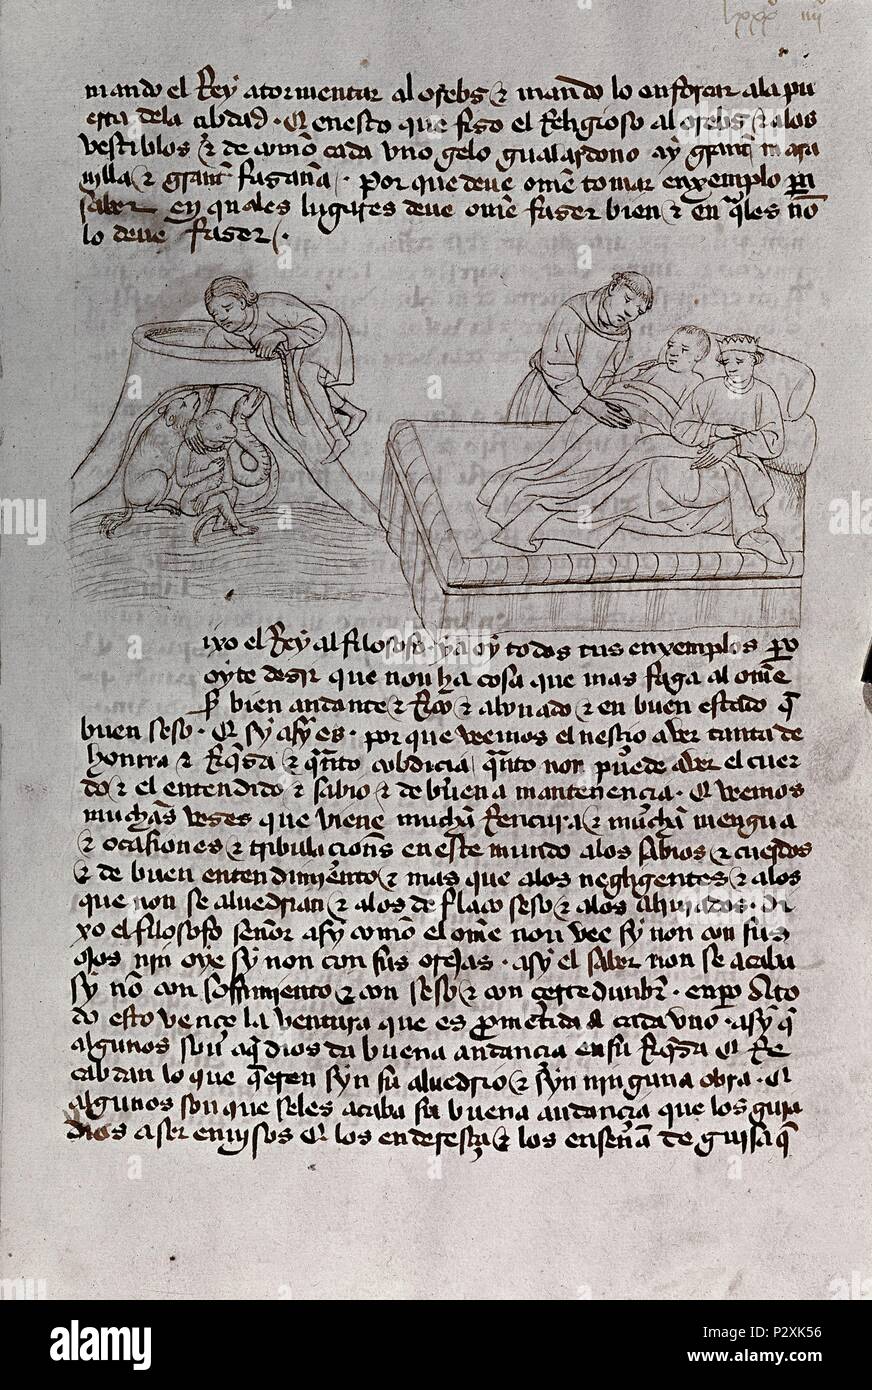 lxxx iiij
mando el Rey atormentar al orebs & mando lo enforcar ala pu
erta dela cibdad. Et enesto que fizo el Religioso al orebs & alos
vestiblos & de como cada vno gelo gualardono ay grant mara
uilla & grant fazaña. por que deve ome tomar enxemplo para
saber en quales lugares deve ome fazer bien & en qles no
lo deve fazer.
ixo el Rey al filosofo. ya oy todos tus enxemplos pero
oyte dezir que non ha cosa que mas faga al ome
ser bien andante & Rico & ahunado & en buen estado que
buen seso. Et sy asy es. por que veemos el nesçio aver tanta de
honrra & Rqza & quanto cobdicia quanto non puede aver el cuer
do & el entendido & sabio & de buena mantenencia. Et veemos
muchas vezes que viene mucha Rencura & mucha mengua
& ocasiones & tribulaciones eneste mundo alos sabios & cuerdos
& de buen entendimiento & mas que alos negligentes & alos
que non se aluedrian & alos de flaco seso & alos ahirados. Di
xo el filosofo señor asy como el ome non vee sy non con sus
ojos nin oye sy non con sus orejas. asy el saber non se acaba
sy no con sofrimiento & con seso & con certedunbre. enpero Ato
do esto vençe la ventura que es prometida a cada vno. asy que
algunos son aq dios da buena andancia en su Rqza Et Re
cabdan lo que qeren syn su aluedrio & syn ninguna obra. Et
algunos son que seles acaba su buena andancia que los guia
dios a ser enuisos Et los endereça & los enseña de guisa q
alamy
alamy
Image ID: P2XK56
www.alamy.com